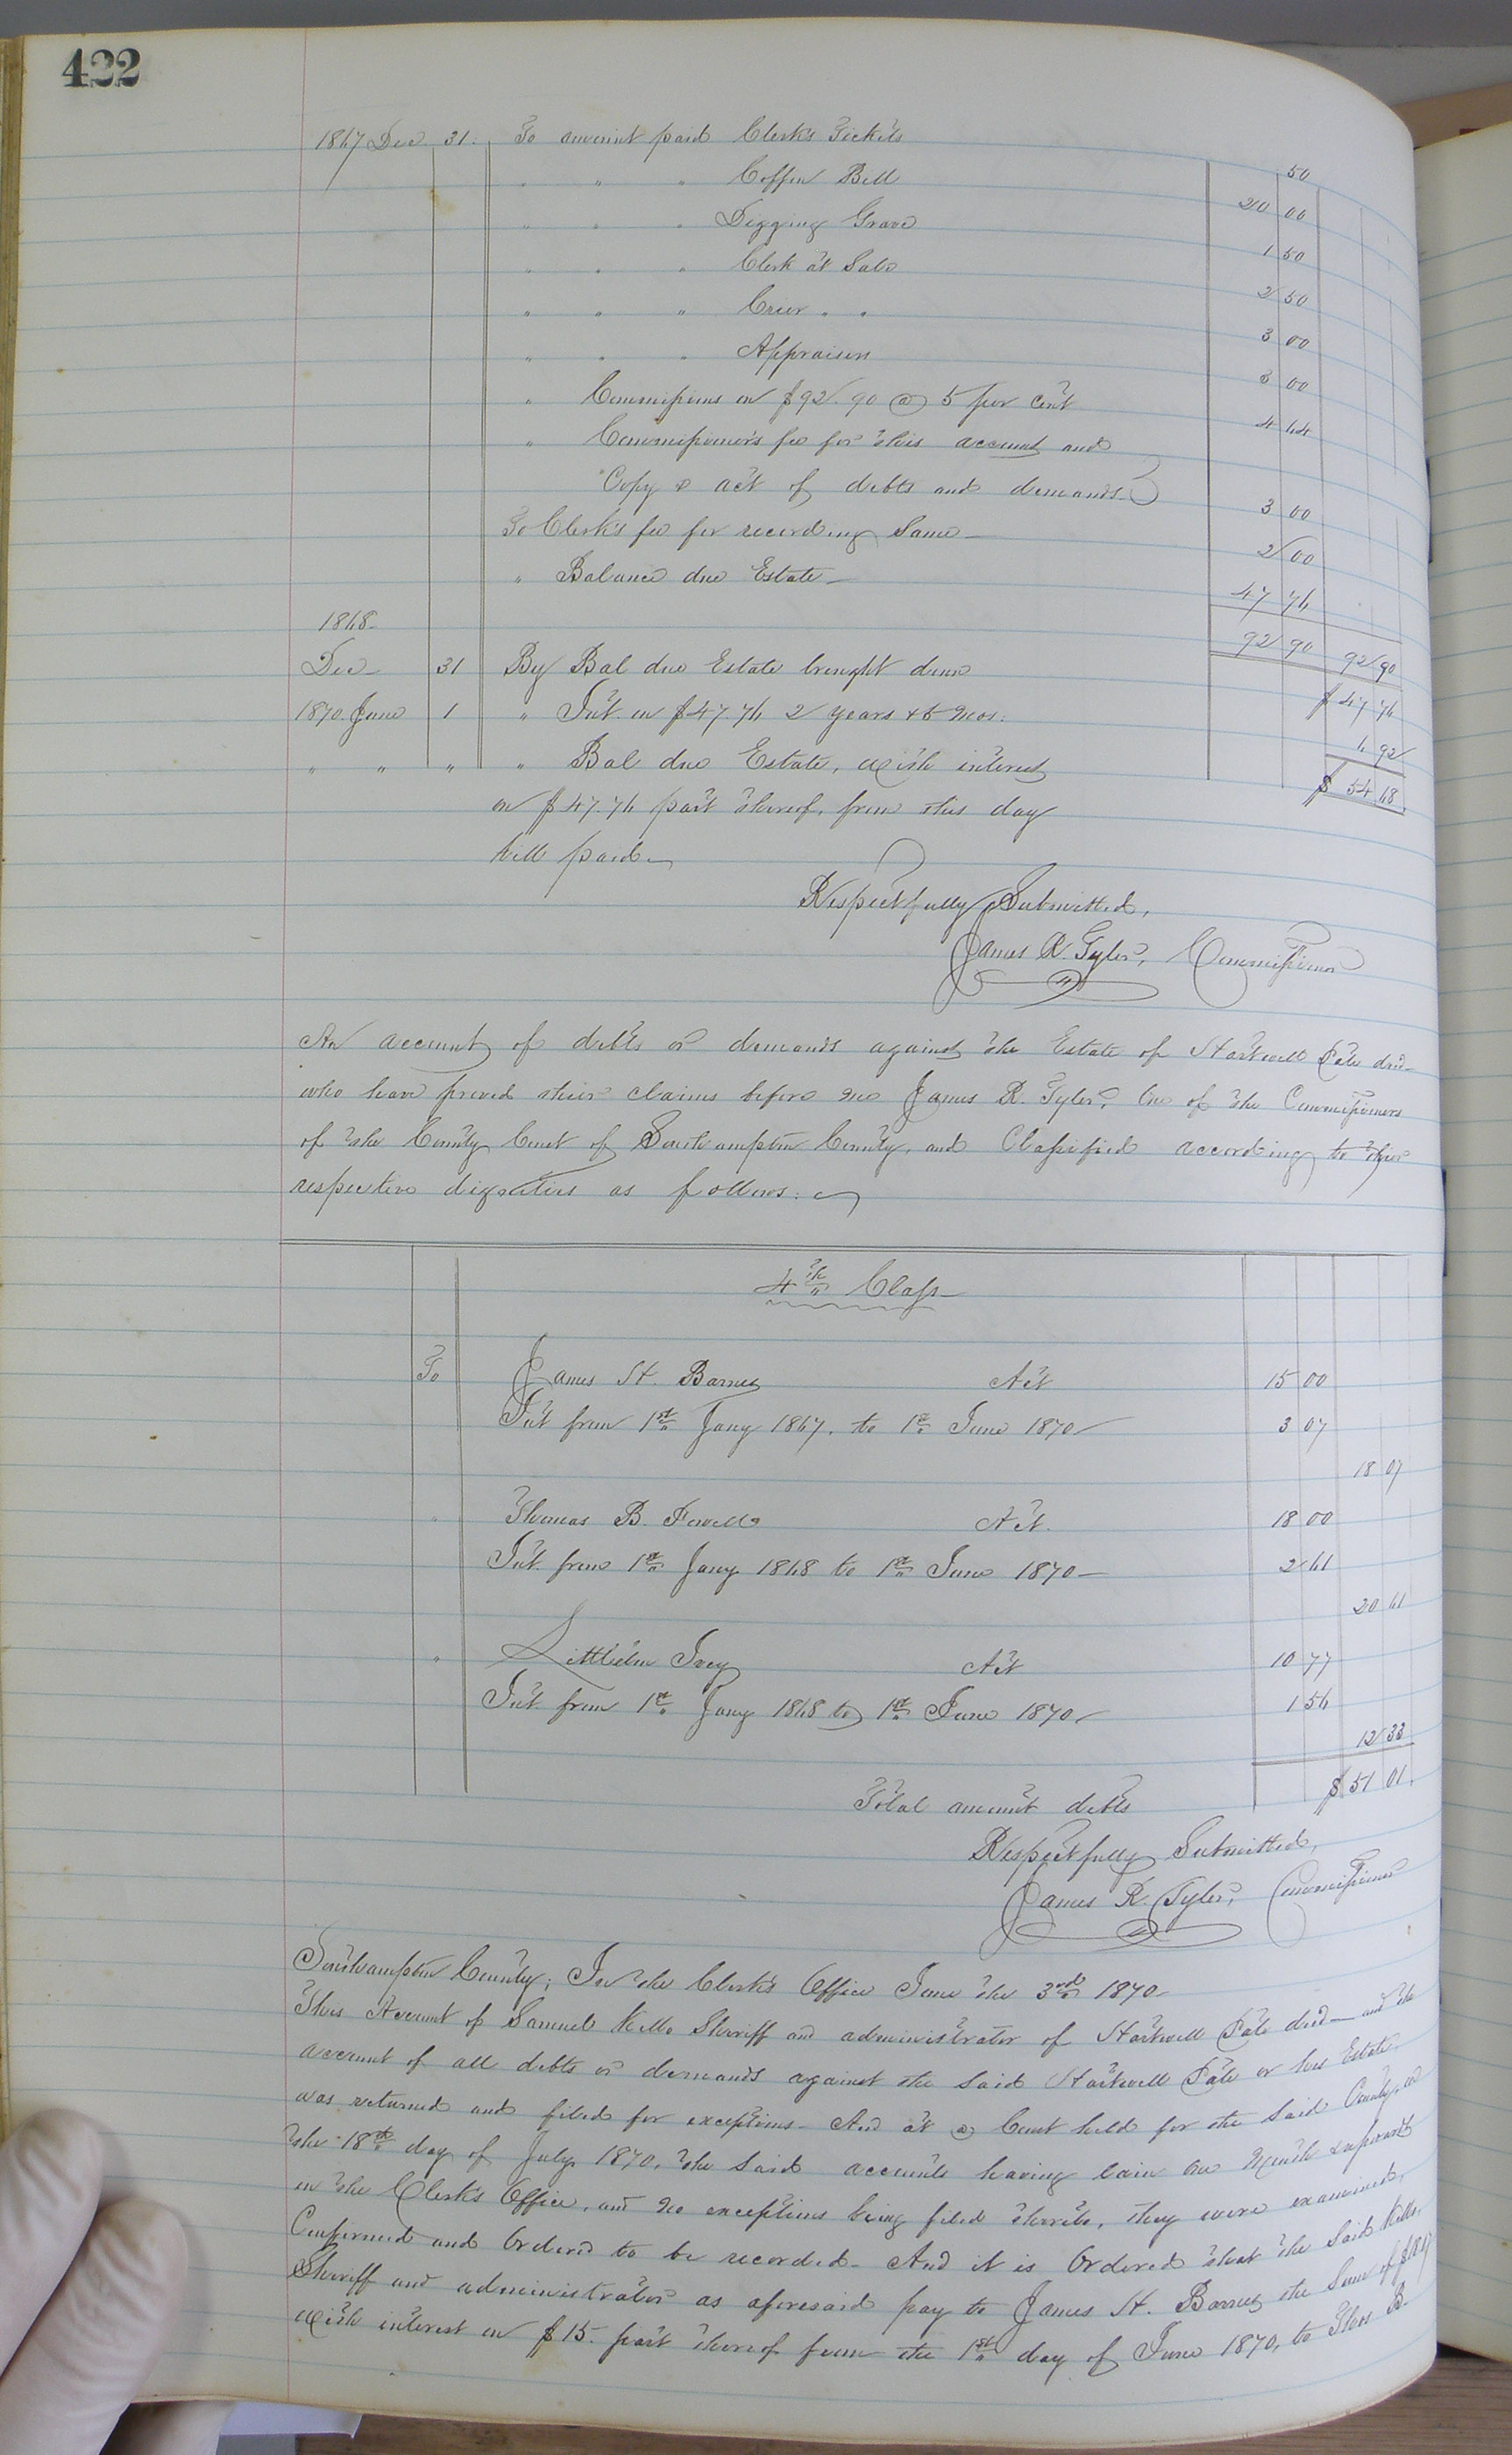 422
1867 Dec 31. To amount paid Clerk's Tickets 50
" " " Coffin Bill 20 00
" " " Digging Grave 1 50
" " " Clerk at Sale 2 50
" " " Crier " " 3 00
" " " Appraisers 8 00
" Commissions on $92.90 @ 5 per cent 4 64
" Commissioner's fee for this account and
Copy & act of debts and demands 3 00
To Clerk's fee for recording Same 2 00
" Balance due Estate 47 76
92 90 92 90
1868
Dec 31 By Bal due Estate brought down $ 47 76
1870 June 1 " Int. on $47.76 2 years & 5 mos. 6 92
" " " " Bal due Estate, with interest $ 54 68
on $47.76 part thereof, from this day
till paid
Respectfully Submitted,
James R. Tyler, Commissioner
An account of debts or demands against the Estate of Hartwell Pate decd
who have proved their claims before me James R. Tyler, One of the Commissioners
of the County Court of Southampton County, and Classified according to their
respective dignities as follows:
4th Class
To James H. Barnes Act 15 00
Int from 1st Jany 1867, to 1st June 1870 3 07
18 07
" Thomas B. Act. 18 00
Int. from 1st Jany 1868 to 1st June 1870 2 61
20 61
" Ivey Act 10 77
Int. from 1st Jany 1868 to 1st June 1870 1 56
12 33
Total amount debts $ 51 01.
Respectfully Submitted,
James R. Tyler, Commissioner
Southampton County; In the Clerk's Office June the 3rd 1870
This Account of Samuel Kello Sheriff and administrator of Hartwell Pate decd and the
account of all debts or demands against the said Hartwell Pate or his Estate,
was returned and filed for exceptions. And at a Court held for the said County, on
the 18th day of July 1870, the said accounts having lain One Month & upward
in the Clerk's Office, and no exceptions being filed thereto, they were examined,
Confirmed and Ordered to be recorded. And it is Ordered that the said Kello,
Sheriff and administrator as aforesaid pay to James H. Barnes the Sum of $18.07
with interest on $15. part thereof from the 1st day of June 1870, to Thos B.